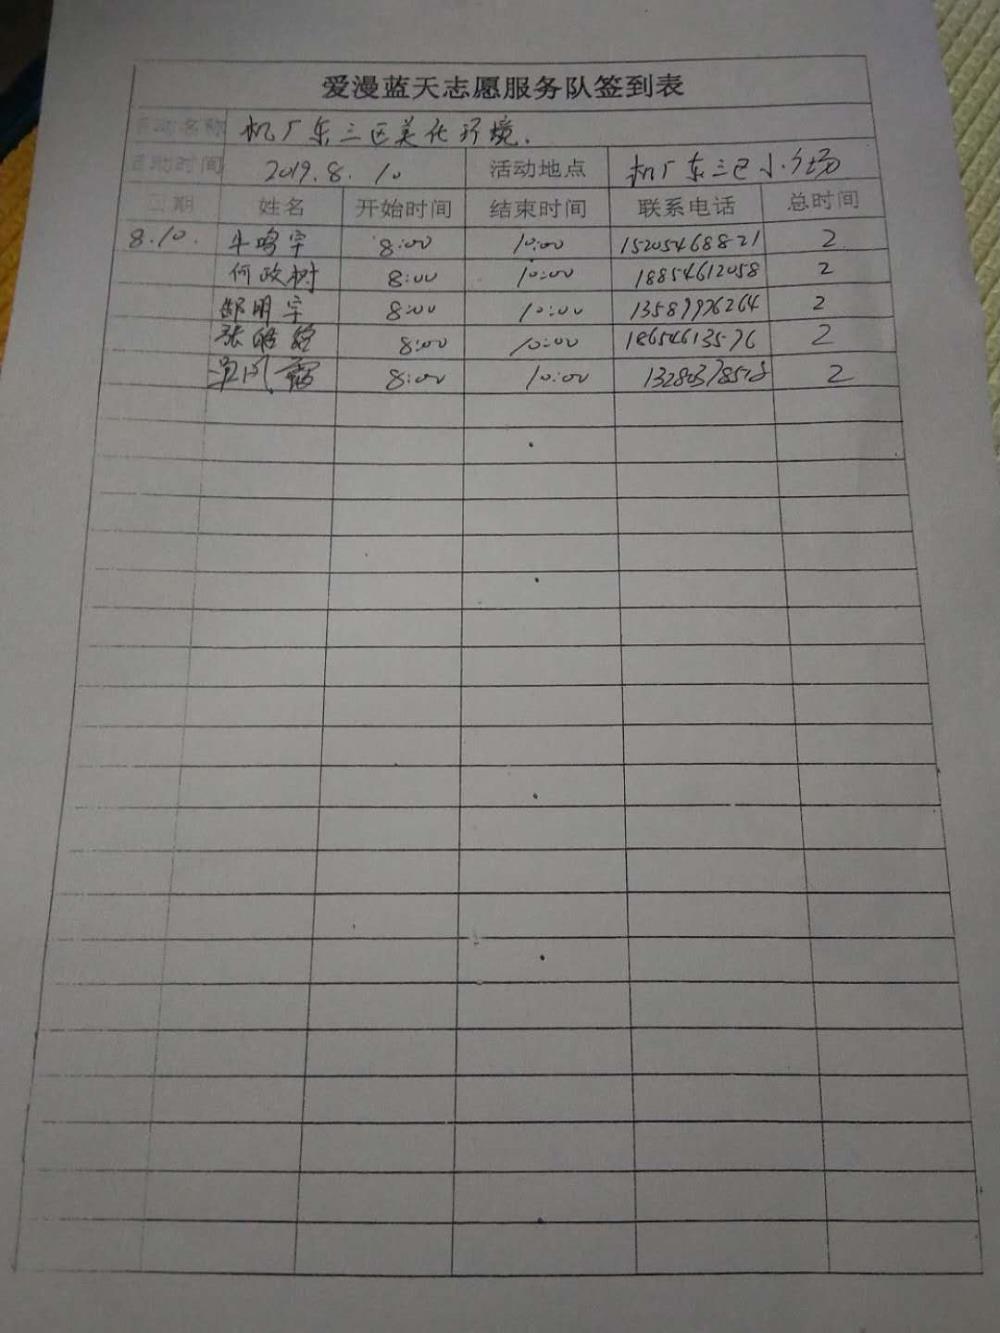 爱漫蓝天志愿服务队签到表
活动名称 机厂东三区美化环境.
活动时间 2019.8.10 活动地点 机厂东三区小广场
日期 姓名 开始时间 结束时间 联系电话 总时间
8.10. 牛鸣宇 8:00 10:00 15205468821 2
何政树 8:00 10:00 18854612058 2
郜明宇 8:00 10:00 13589976264 2
张皓铭 8:00 10:00 18654613576 2
单风霞 8:00 10:00 13280378518 2